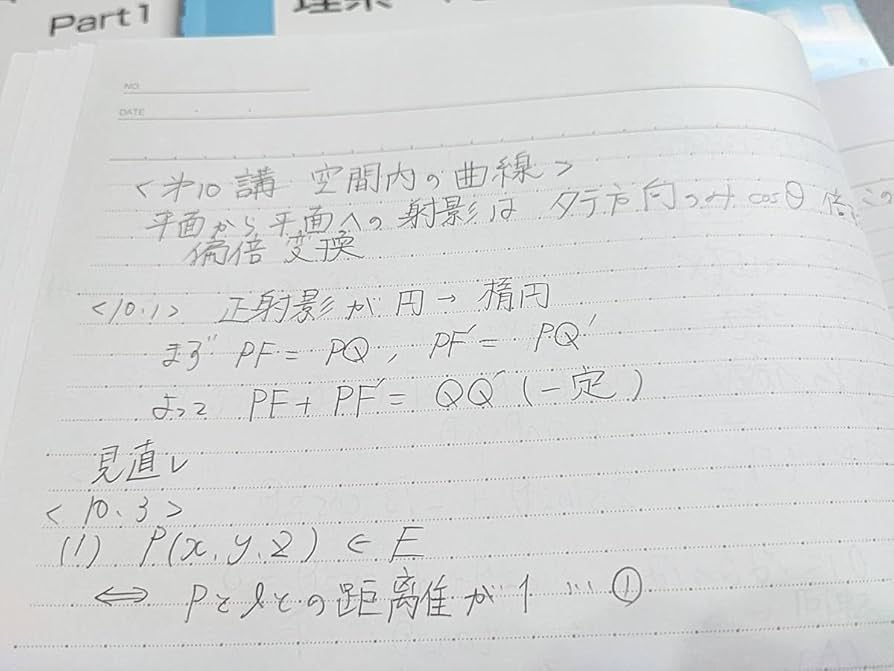 Part1
NO.
DATE
<第10講 空間内の曲線>
平面から平面への射影は タテ方向のみ cosθ 倍 この
偏倍変換
<10.1> 正射影が円→楕円
まず PF = PQ , PF' = PQ'
よって PF + PF' = QQ' (一定)
見直し
<10.3>
(1) P(x, y, z) ∈ E
⇔ Pとlとの距離が1 … ①